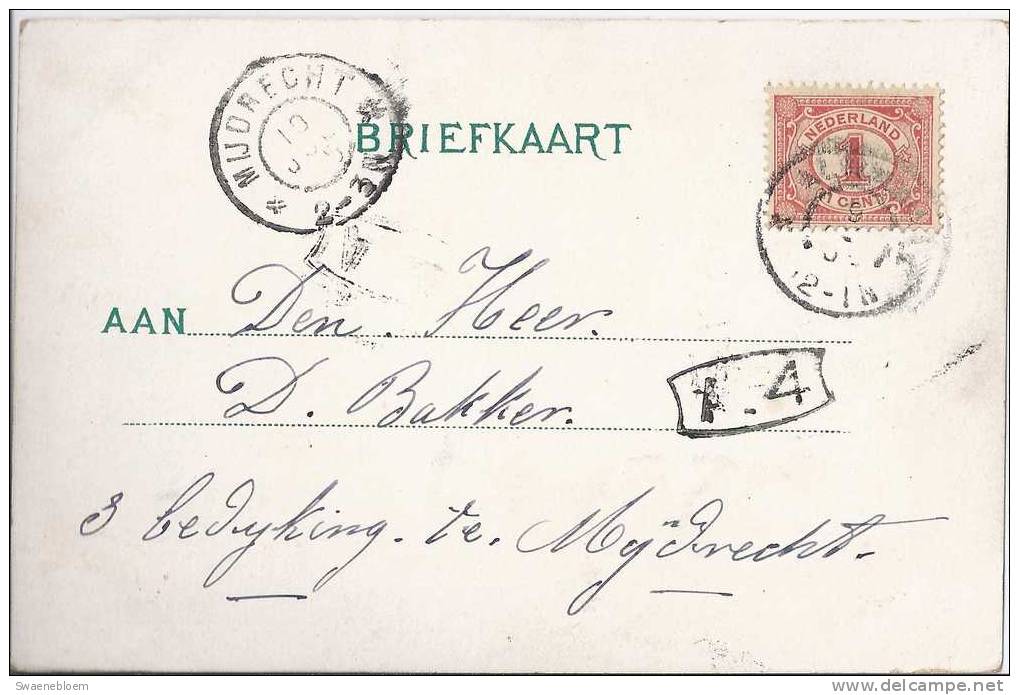 MIJDRECHT
2-3N
BRIEFKAART
NEDERLAND
1
CENT
12-1N
AAN Den. Heer.
D. Bakker.
4
3 bedyking. te. Mijdrecht.
Swaenebloem
delcampe.net